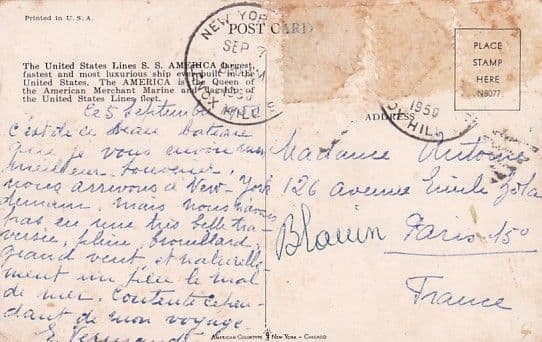 Printed in U.S.A.
POST CARD
NEW YORK
SEP 7
1950
KNOX HILL S
1950
X HILL
PLACE
STAMP
HERE
N8077
The United States Lines S. S. AMERICA largest,
fastest and most luxurious ship ever built in the
United States. The AMERICA is the Queen of
the American Merchant Marine and flagship of
the United States Lines fleet.
ADDRESS
Ce 5 Septembre
C'est de ce beau bateau
que je vous envoie mon
meilleur souvenir.
nous arrivons à New-York
demain, mais nous n'avons
pas eu une très belle tra-
versée, pluie, brouillard,
grand vent et naturelle-
ment un peu le mal
de mer. Contente cepen-
dant de mon voyage.
Madame Antoine
126 avenue Emile Zola
Blavin
Paris 15°
France
AMERICAN COLORTYPE NEW YORK - CHICAGO